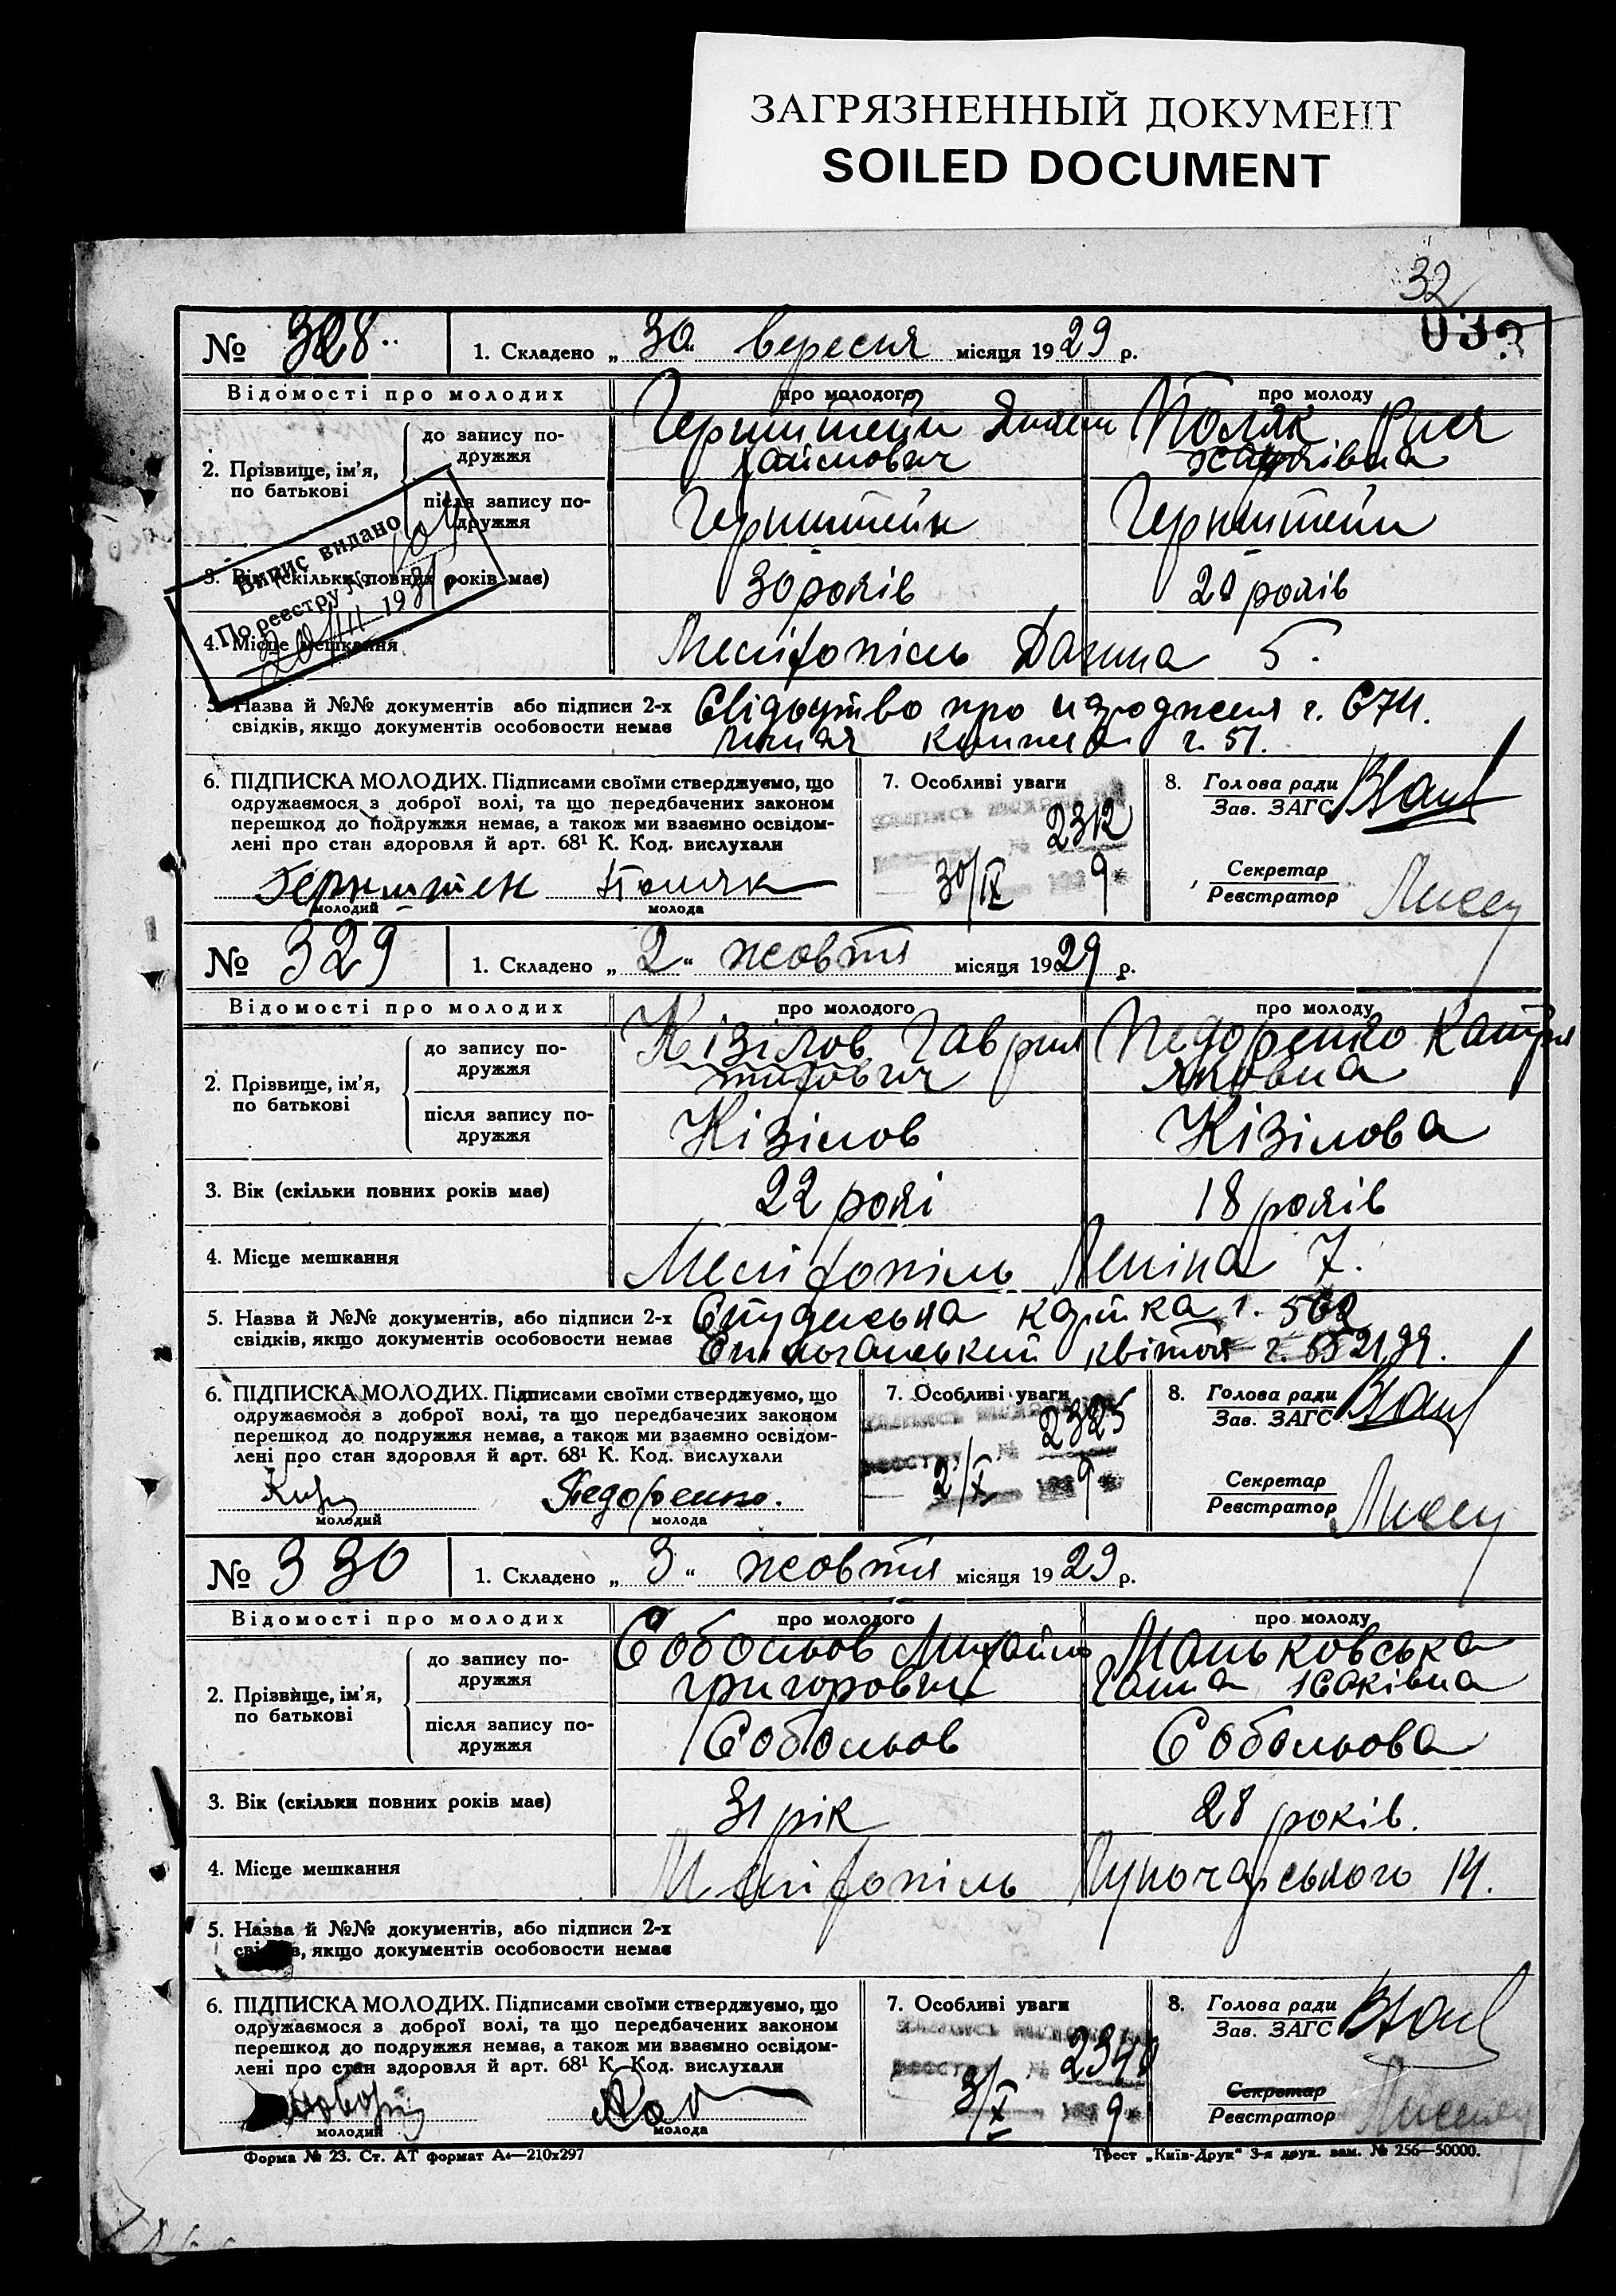 ЗАГРЯЗНЕННЫЙ ДОКУМЕНТ
SOILED DOCUMENT
32
№ 328
1. Складено „30“ вересня місяця 1929 р.
Відомості про молодих
про молодого
про молоду
2. Прізвище, ім'я, по батькові
до запису подружжя
Поляк
після запису подружжя
Гернштейн
Гернштейн
3. Вік (скільки повних років має)
30 років
28 років
4. Місце мешкання
Мелітопіль
5.
Випис видано
По реестру №
193
5. Назва й №№ документів або підписи 2-х
свідків, якщо документів особовости немає
Свідоцтво про народження ч. 674.
ч. 51.
6. ПІДПИСКА МОЛОДИХ. Підписами своїми стверджуємо, що
одружаємося з доброї волі, та що передбачених законом
перешкод до подружжя немає, а також ми взаємно освідом-
лені про стан здоровля й арт. 68¹ К. Код. вислухали
Поляк
молодий
молода
7. Особливі уваги
№ 2312
30/IX 9
8. Голова ради
Зав. ЗАГС
Секретар
Реєстратор
№ 329
1. Складено „2“ жовтня місяця 1929 р.
Відомості про молодих
про молодого
про молоду
2. Прізвище, ім'я,
по батькові
до запису по-
дружжя
Кізілов Гаврил
Титович
Федоренко Катря
Яковна
після запису по-
дружжя
Кізілов
Кізілова
3. Вік (скільки повних років має)
22 роки
18 років
4. Місце мешкання
Мелітопіль Леніна 7.
5. Назва й №№ документів, або підписи 2-х
свідків, якщо документів особовости немає
Студенська картка ч.
квіток ч.
6. ПІДПИСКА МОЛОДИХ. Підписами своїми стверджуємо, що
одружаємося з доброї волі, та що передбачених законом
перешкод до подружжя немає, а також ми взаємно освідом-
лені про стан здоровля й арт. 68¹ К. Код. вислухали
Федоренко.
молодий
молода
7. Особливі уваги
№ 2325
2/X 9
8. Голова ради
Зав. ЗАГС
Секретар
Реєстратор
№ 330
1. Складено „3“ жовтня місяця 1929 р.
Відомості про молодих
про молодого
про молоду
2. Прізвище, ім'я,
по батькові
до запису по-
дружжя
Собольов Михайло
Григорович
Маньковська
Ганна Ісаківна
після запису по-
дружжя
Собольов
Собольова
3. Вік (скільки повних років має)
31 рік
28 років.
4. Місце мешкання
Мелітопіль Луночарського 14.
5. Назва й №№ документів, або підписи 2-х
свідків, якщо документів особовости немає
6. ПІДПИСКА МОЛОДИХ. Підписами своїми стверджуємо, що
одружаємося з доброї волі, та що передбачених законом
перешкод до подружжя немає, а також ми взаємно освідом-
лені про стан здоровля й арт. 68¹ К. Код. вислухали
молодий
молода
7. Особливі уваги
№
3/X 9
8. Голова ради
Зав. ЗАГС
Секретар
Реєстратор
Форма № 23. Ст. АТ формат А4—210x297
Трест „Київ-Друк“ 3-я друк. зам. № 256—50000.